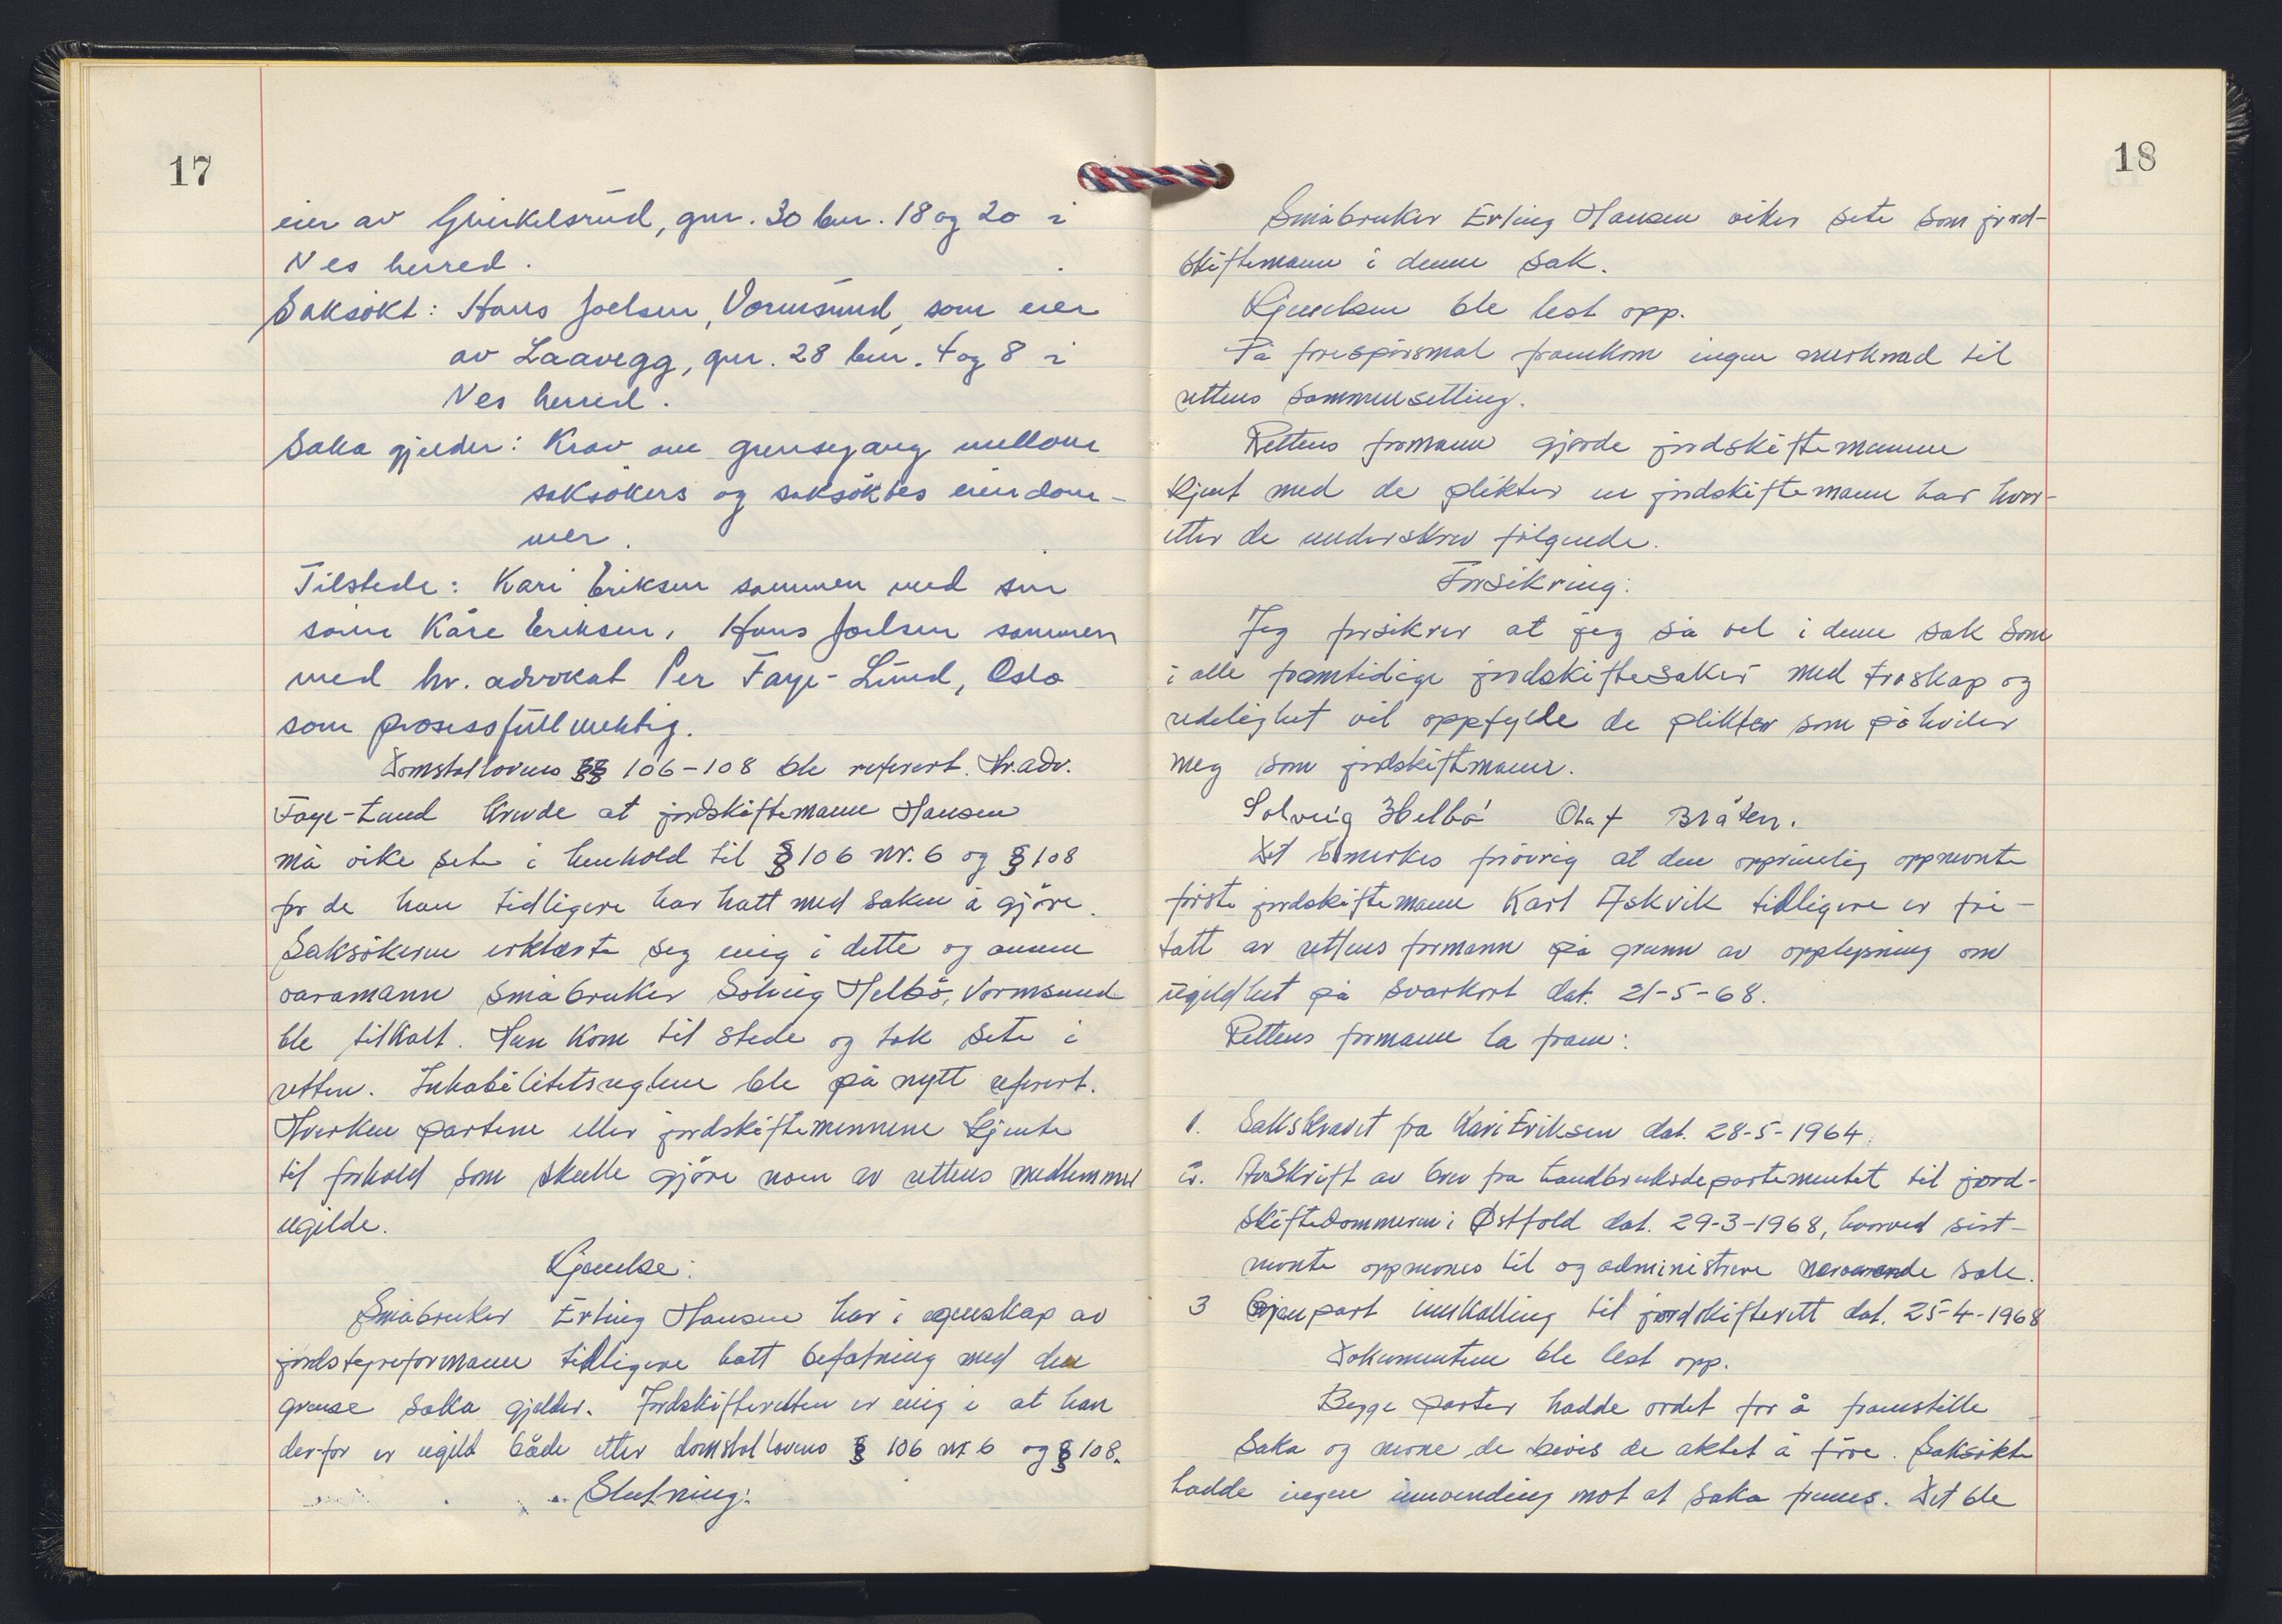 17
eier av Gbirkelsrud, gnr. 30 bnr. 18 og 20 i
Nes herred.
Saksøkt: Hans Joelsen, Vormsund, som eier
av Laavegg, gnr. 28 bnr. 4 og 8 i
Nes herred.
Saka gjelder: Krav om grensegang mellom
saksøkers og saksøktes eiendom-
mer.
Tilstede: Kari Eriksen sammen med sin
sønn Kåre Eriksen, Hans Joelsen sammen
med hr. advokat Per Faye-Lund, Oslo
som prosessfullmektig.
Domstollovens §§ 106-108 ble referert. Hr. adv.
Faye-Lund krevde at jordskiftemann Hansen
må vike sete i henhold til § 106 nr. 6 og § 108
for de han tidligere har hatt med saken å gjøre.
Saksøkeren erklærte seg enig i dette og annen
varamann småbruker Solveig Helbö, Vormsund
ble tilkalt. Hun kom til stede og tok sete i
retten. Inhabilitetsreglene ble på nytt referert.
Hverken partene eller jordskiftemennene kjente
til forhold som skulle gjøre noen av rettens medlemmer
ugilde.
Kjennelse:
Småbruker Erling Hansen har i egenskap av
jordstyreformann tidligere hatt befatning med den
grense saka gjelder. Jordskifteretten er enig i at han
derfor er ugild både etter domstollovens § 106 nr 6 og § 108.
Slutning:
18
Småbruker Erling Hansen viker sete som jord-
skiftemann i denne sak.
Kjennelsen ble lest opp.
På forespørsmål framkom ingen merknad til
rettens sammensetting.
Rettens formann gjorde jordskiftemennene
kjent med de plikter en jordskiftemann har hvor-
etter de underskrev følgende.
Forsikring:
Jeg forsikrer at jeg så vel i denne sak som
i alle framtidige jordskiftesaker med troskap og
redelighet vil oppfylde de plikter som påhviler
meg som jordskiftmann.
Solveig Helbö Olaf Bråten.
Det bemerkes forøvrig at den opprinnelig oppnevnte
første jordskiftemann Karl Askvik tidligere er fri-
tatt av rettens formann på grunn av opplysning om
ugildhet på svarkort dat. 21-5-68.
Rettens formann la fram:
1. Sakskravet fra Kari Eriksen dat. 28-5-1964.
2. Avskrift av brev fra Landbruksdepartementet til jord-
skiftedommeren i Østfold dat. 29-3-1968, hvorved sist-
nevnte oppnevnes til og administrere nærværende sak.
3 Gjenpart innkalling til jordskifterett dat. 25-4-1968
Dokumentene ble lest opp.
Begge parter hadde ordet for å framstille
saka og nevne de bevis de aktet å føre. Saksøkte
hadde ingen innvending mot at saka fremmes. Det ble